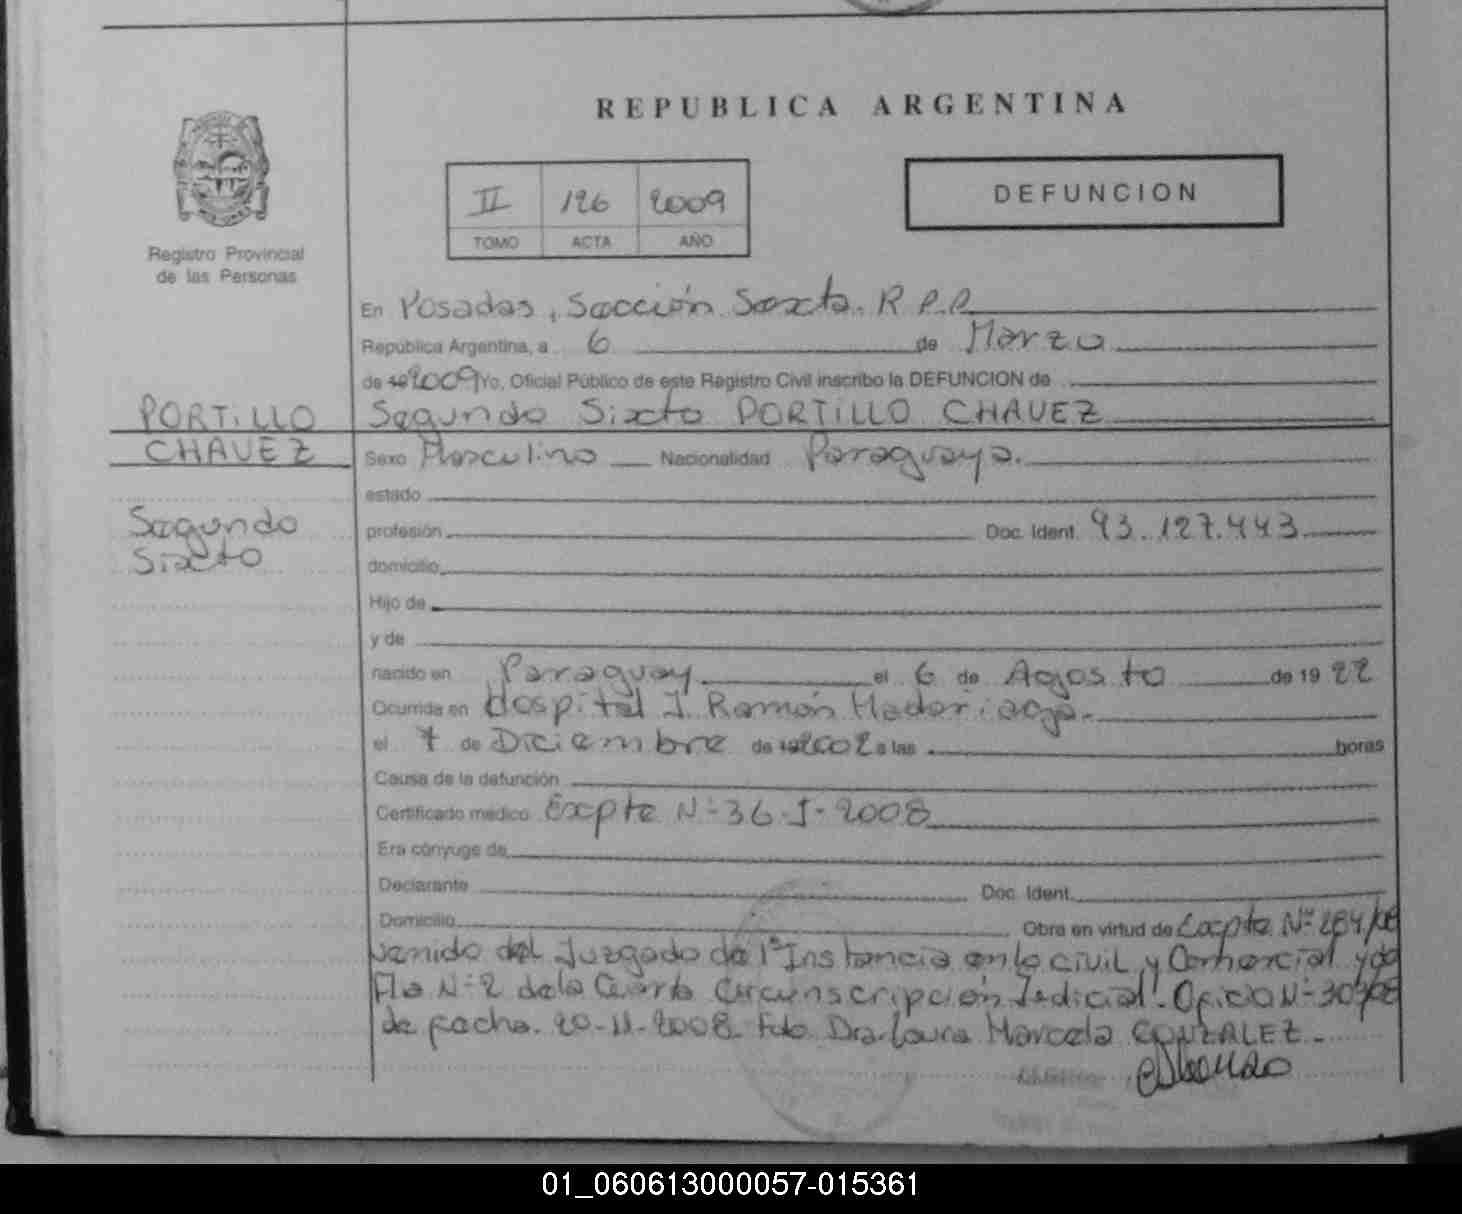 REPUBLICA ARGENTINA
II 126 2009
TOMO ACTA AÑO
DEFUNCION
Registro Provincial
de las Personas
PORTILLO
CHAVEZ
Segundo
Sixto
En Posadas, Sección Sexta. R.P.P.
República Argentina, a 6 de Marzo
de 19 2009 Yo, Oficial Público de este Registro Civil inscribo la DEFUNCION de
Segundo Sixto PORTILLO CHAVEZ
Sexo Masculino Nacionalidad Paraguaya.
estado
profesión Doc. Ident. 93.127.443
domicilio
Hijo de
y de
nacido en Paraguay el 6 de Agosto de 1922
Ocurrida en Hospital J. Ramón Madariaga.
el 7 de Diciembre de 19 2002 a las horas
Causa de la defunción
Certificado médico Expte N-36-I-2008
Era cónyuge de
Declarante Doc. Ident.
Domicilio Obra en virtud de Expte Nº 284/08
venido del Juzgado de 1º Instancia en lo civil y Comercial y de
Flia Nº2 de la Cuarta Circunscripción Judicial. Oficio Nº
de fecha. 20-11-2008. Fdo. Dra. Laura Marcela GONZALEZ.
01_060613000057-015361